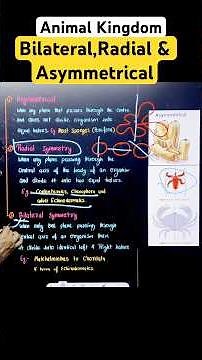 Animal Kingdom
Bilateral,Radial &
Asymmetrical
Asymmetrical
When any plane that passes through the centre
and does not divide organism into
equal halves. Eg: Most Sponges (Porifera)
Radial Symmetry
When any plane passing through the
central axis of the body of an organism
and divide it into two equal halves.
Eg: Coelenterates, Ctenophora and
adult Echinodermata.
Bilateral Symmetry
When only one plane passing through
central axis of organism then
it divide into identical left & right halves
Eg:- Platyhelminthes to Chordata
Asymmetrical